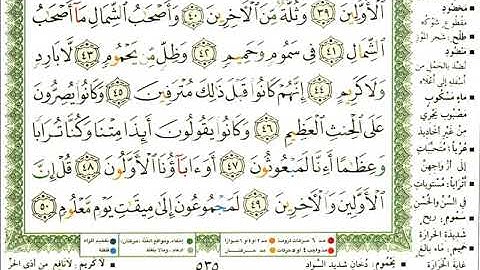 ٱلْأَوَّلِينَ ٣٩ وَثُلَّةٌ مِّنَ ٱلْآخِرِينَ ٤٠ وَأَصْحَٰبُ ٱلشِّمَالِ مَآ أَصْحَٰبُ
ٱلشِّمَالِ ٤١ فِى سَمُومٍ وَحَمِيمٍ ٤٢ وَظِلٍّ مِّن يَحْمُومٍ ٤٣ لَّا بَارِدٍ
وَلَا كَرِيمٍ ٤٤ إِنَّهُمْ كَانُوا۟ قَبْلَ ذَٰلِكَ مُتْرَفِينَ ٤٥ وَكَانُوا۟ يُصِرُّونَ
عَلَى ٱلْحِنثِ ٱلْعَظِيمِ ٤٦ وَكَانُوا۟ يَقُولُونَ أَئِذَا مِتْنَا وَكُنَّا تُرَابًا
وَعِظَٰمًا أَءِنَّا لَمَبْعُوثُونَ ٤٧ أَوَءَابَآؤُنَا ٱلْأَوَّلُونَ ٤٨ قُلْ إِنَّ
ٱلْأَوَّلِينَ وَٱلْآخِرِينَ ٤٩ لَمَجْمُوعُونَ إِلَىٰ مِيقَٰتِ يَوْمٍ مَّعْلُومٍ ٥٠
٥٣٥
مَخْضُودٍ
مقطوع شوكُه
طَلْحٍ: شجر الموز
مَنضُودٍ
نُضِّد بالحَمل من
أسفله إلى أعلاه
مَاءٍ مَسْكُوبٍ
مصبوب يجري
من غير أخاديد
عُرُبًا: متحبّبات
إلى أزواجهنّ
أَتْرَابًا: مستويات
في السنّ والحُسن
سَمُومٍ: ريح
حَمِيمٍ: ماء بالغ
غاية الحرارة
يَحْمُومٍ: دخان شديد السواد
لَا كَرِيمٍ: لا نافع من أذى الحرّ